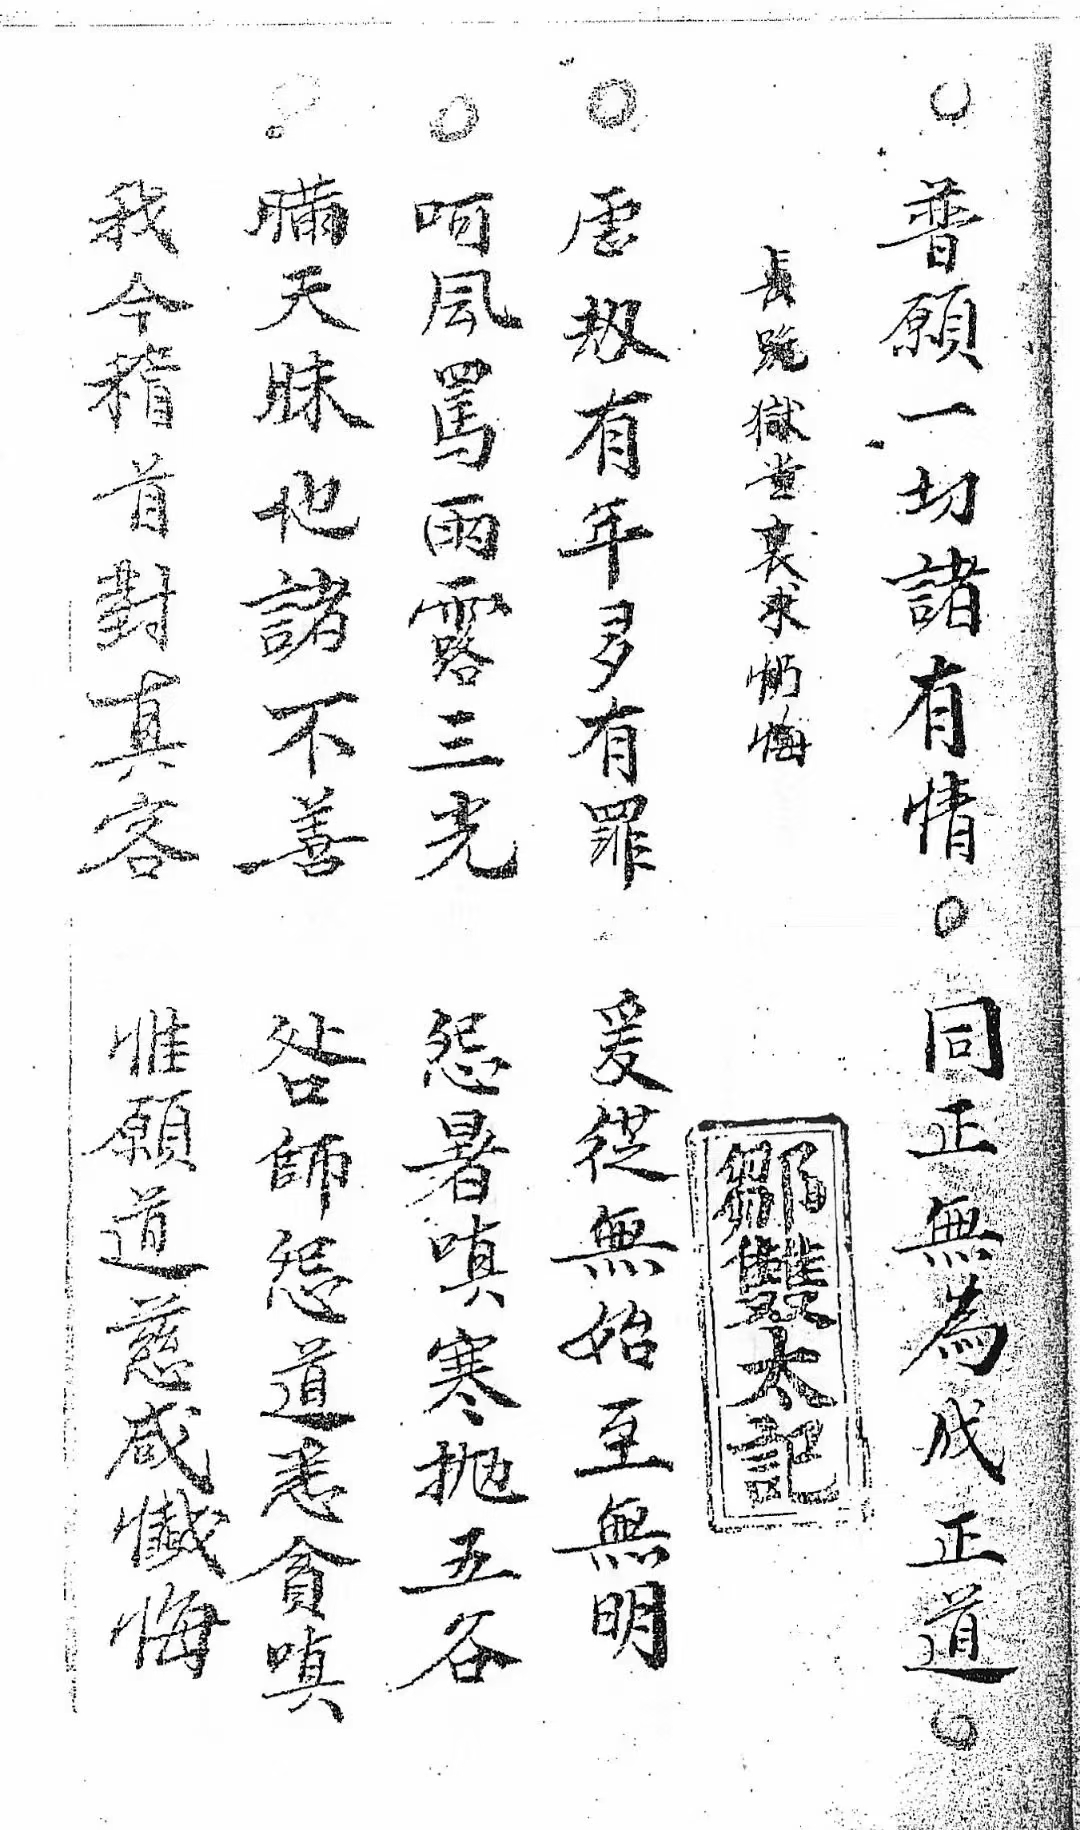 ○普願一切諸有情○同正無為成正道○
長跪獄堂哀求忏悔
鄒雙太記
○虛刼有年多有罪 爰從無始至無明
○呵風罵雨露三光 怨暑嗔寒抛五谷
○瞞天昧地諸不善 咎師怨道恚貪嗔
我今稽首對真容 惟願道慈咸懺悔